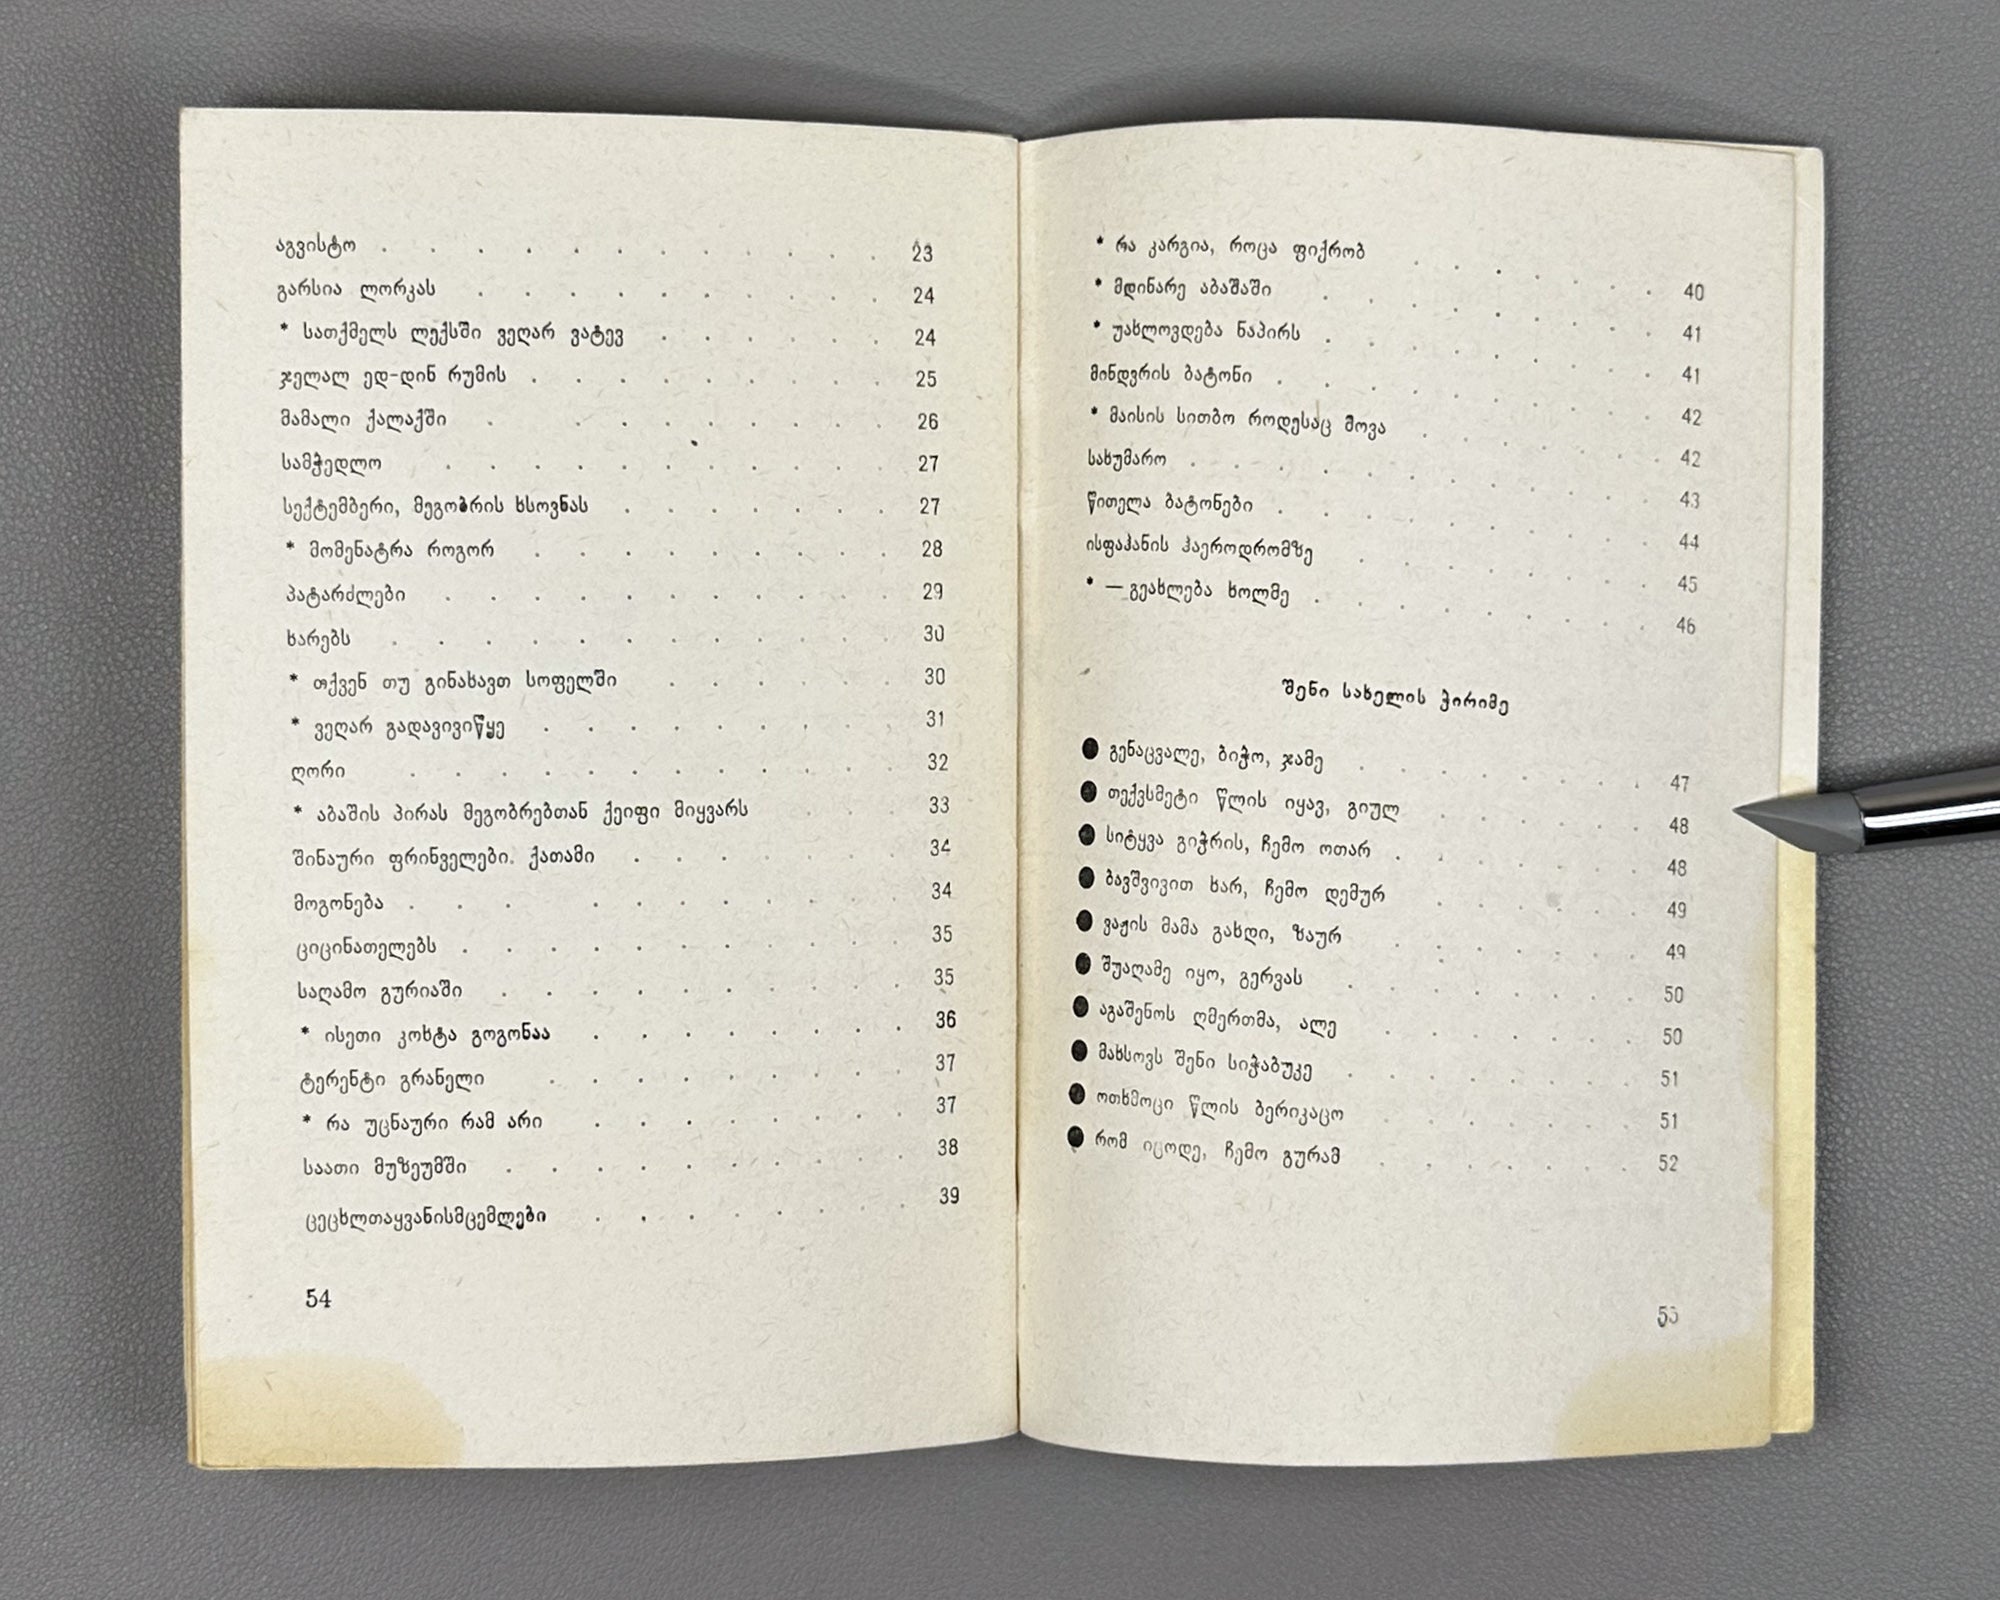 აგვისტო . . . . . . . . . . . 23
გარსია ლორკას . . . . . . . . . 24
* სათქმელს ლექსში ვეღარ ვატევ . . . . . . 24
ჯელალ ედ-დინ რუმის . . . . . . . . 25
მამალი ქალაქში . . . . . . . . 26
სამჭედლო . . . . . . . . . . 27
სექტემბერი, მეგობრის ხსოვნას . . . . . . 27
* მომენატრა როგორ . . . . . . . . 28
პატარძლები . . . . . . . . . . 29
ხარებს . . . . . . . . . . . 30
* თქვენ თუ გინახავთ სოფელში . . . . . 30
* ვეღარ გადავივიწყე . . . . . . . . 31
ღორი . . . . . . . . . . . 32
* აბაშის პირას მეგობრებთან ქეიფი მიყვარს . . . 33
შინაური ფრინველები. ქათამი . . . . . . 34
მოგონება . . . . . . . . . . 34
ციცინათელებს . . . . . . . . . . 35
საღამო გურიაში . . . . . . . . . 35
* ისეთი კოხტა გოგონაა . . . . . . . 36
ტერენტი გრანელი . . . . . . . . 37
* რა უცნაური რამ არი . . . . . . . 37
საათი მუზეუმში . . . . . . . . . 38
ცეცხლთაყვანისმცემლები . . . . . . . 39
54
* რა კარგია, როცა ფიქრობ . . . . . . 40
* მდინარე აბაშაში . . . . . . . . 41
* უახლოვდება ნაპირს . . . . . . . . 41
მინდვრის ბატონი . . . . . . . . . 42
* მაისის სითბო როდესაც მოვა . . . . . . 42
სახუმარო . . . . . . . . . . . 43
წითელა ბატონები . . . . . . . . . 44
ისფაჰანის ჰაეროდრომზე . . . . . . . 45
* — გეახლება ხოლმე . . . . . . . . 46
შენი სახელის ჭირიმე
● გენაცვალე, ბიჭო, ჯამე . . . . . . . 47
● თექვსმეტი წლის იყავ, გიულ . . . . . 48
● სიტყვა გიჭრის, ჩემო ოთარ . . . . . . 48
● ბავშვივით ხარ, ჩემო დემურ . . . . . 49
● ვაჟის მამა გახდი, ზაურ . . . . . . 49
● შუაღამე იყო, გერვას . . . . . . . 50
● აგაშენოს ღმერთმა, ალე . . . . . . 50
● მახსოვს შენი სიჭაბუკე . . . . . . . 51
● ოთხმოცი წლის ბერიკაცო . . . . . . 51
● რომ იცოდე, ჩემო გურამ . . . . . . 52
55